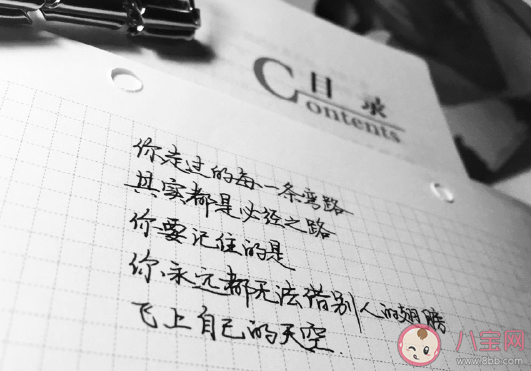 目录
Contents
你走过的每一条弯路
其实都是必经之路
你要记住的是
你永远都无法借别人的翅膀
飞上自己的天空.
八宝网
www.8bb.com